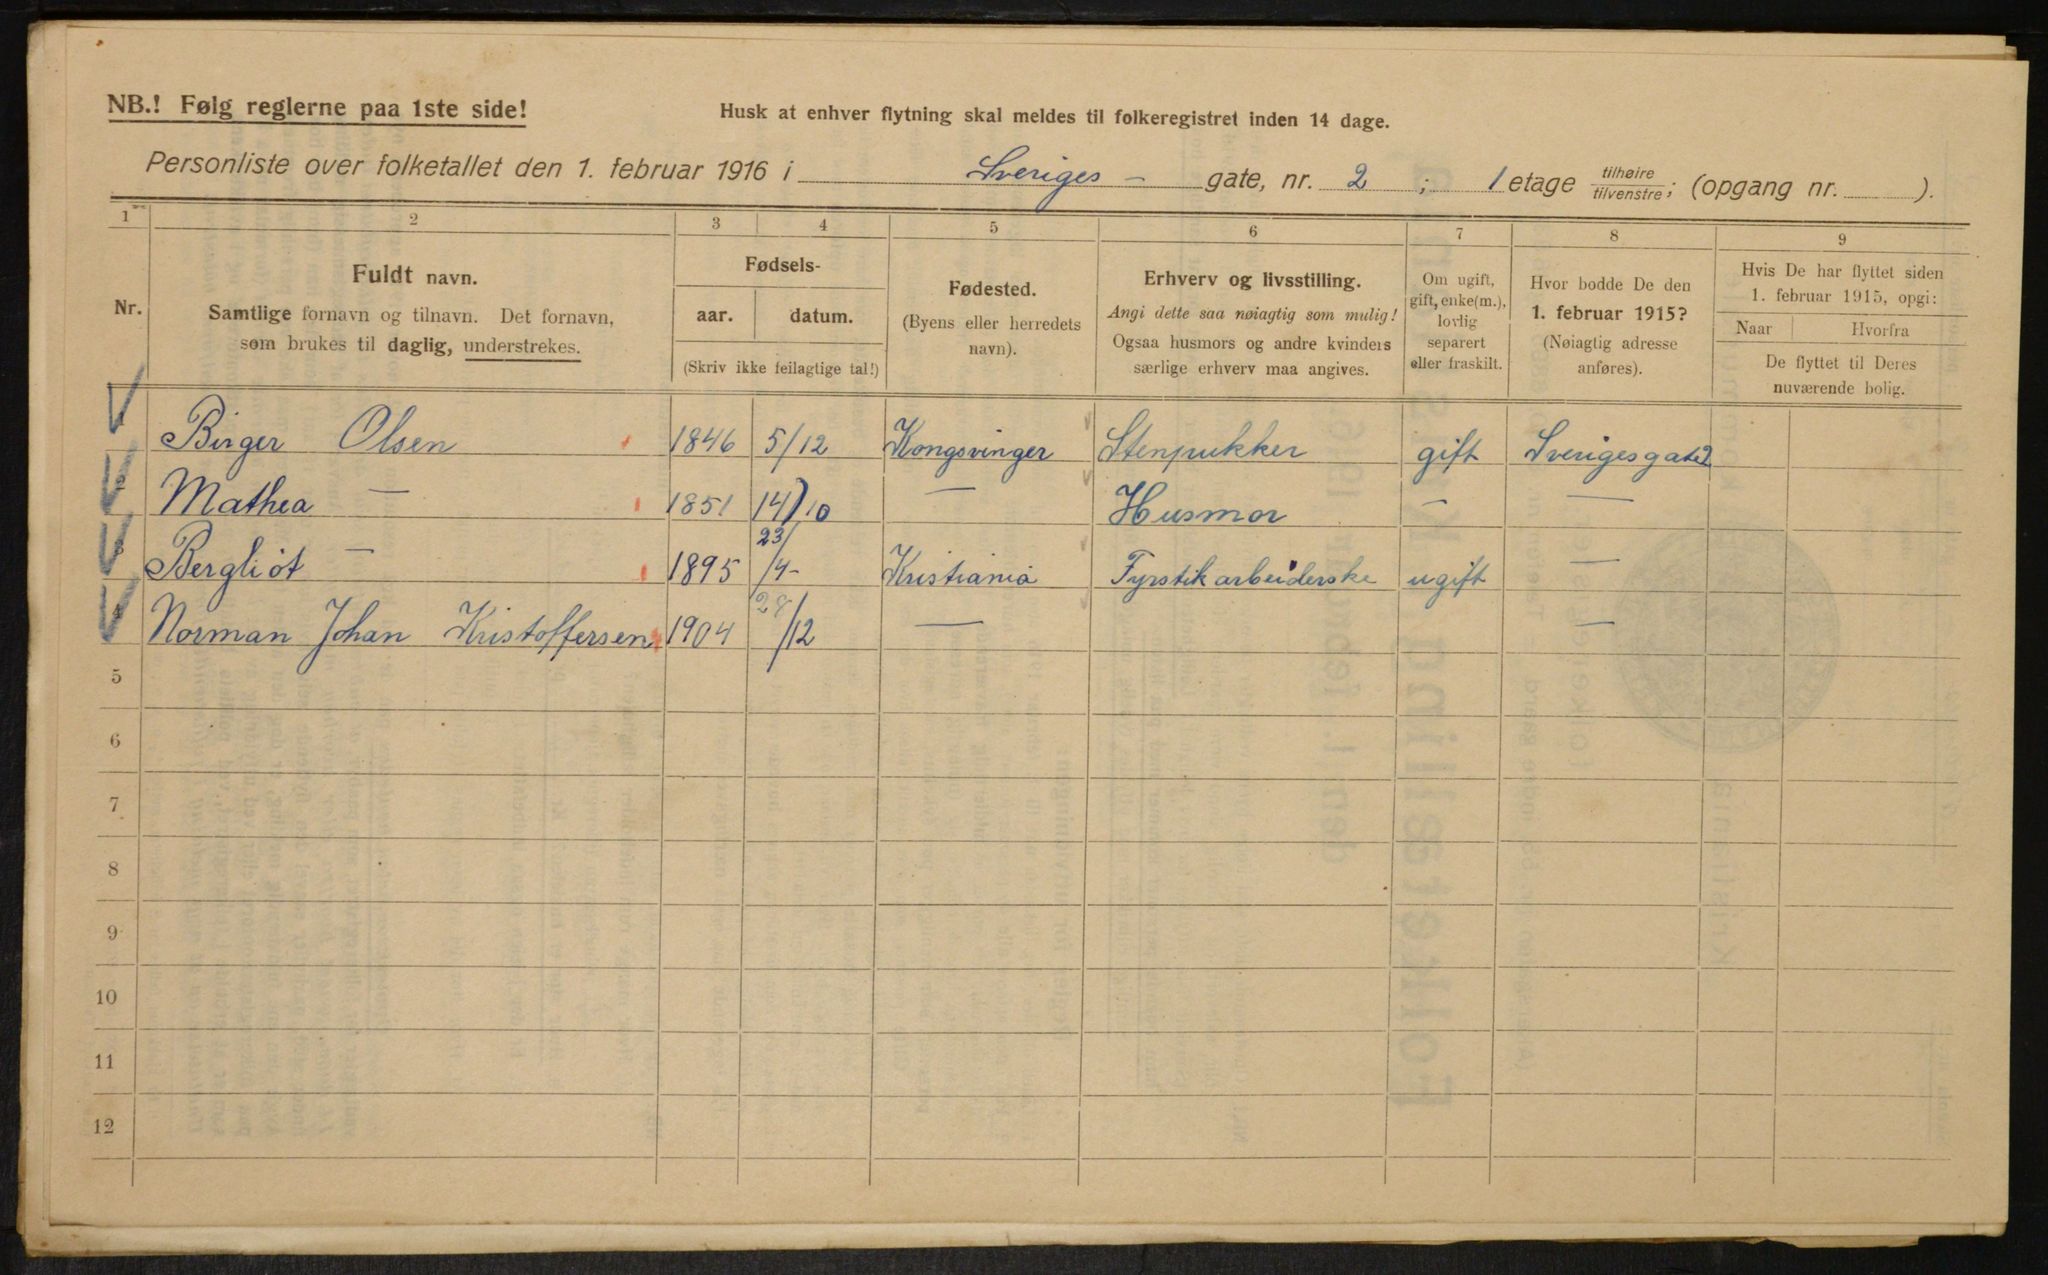 NB.! Følg reglerne paa 1ste side!
Husk at enhver flytning skal meldes til folkeregistret inden 14 dage.
Personliste over folketallet den 1. februar 1916 i Sveriges - gate, nr. 2 ; 1 etage tilhøire/tilvenstre; (opgang nr. ).
1 2 3 4 5 6 7 8 9
Nr.
Fuldt navn.
Samtlige fornavn og tilnavn. Det fornavn,
som brukes til daglig, understrekes.
Fødsels-
aar. datum.
(Skriv ikke feilagtige tal!)
Fødested.
(Byens eller herredets
navn).
Erhverv og livsstilling.
Angi dette saa nøiagtig som mulig!
Ogsaa husmors og andre kvinders
særlige erhverv maa angives.
Om ugift,
gift, enke(m.),
lovlig
separert
eller fraskilt.
Hvor bodde De den
1. februar 1915?
(Nøiagtig adresse
anføres).
Hvis De har flyttet siden
1. februar 1915, opgi:
Naar Hvorfra
De flyttet til Deres
nuværende bolig.
Birger Olsen 1846 5/12 Kongsvinger Stenpukker gift Sverigesgate 2
2 Mathea — 1851 14/10 — Husmor — —
3 Bergliot — 1895 23/4- Kristiania Fyrstikarbeiderske ugift —
4 Norman Johan Kristoffersen 1904 28/12 — —
5
6
7
8
9
10
11
12